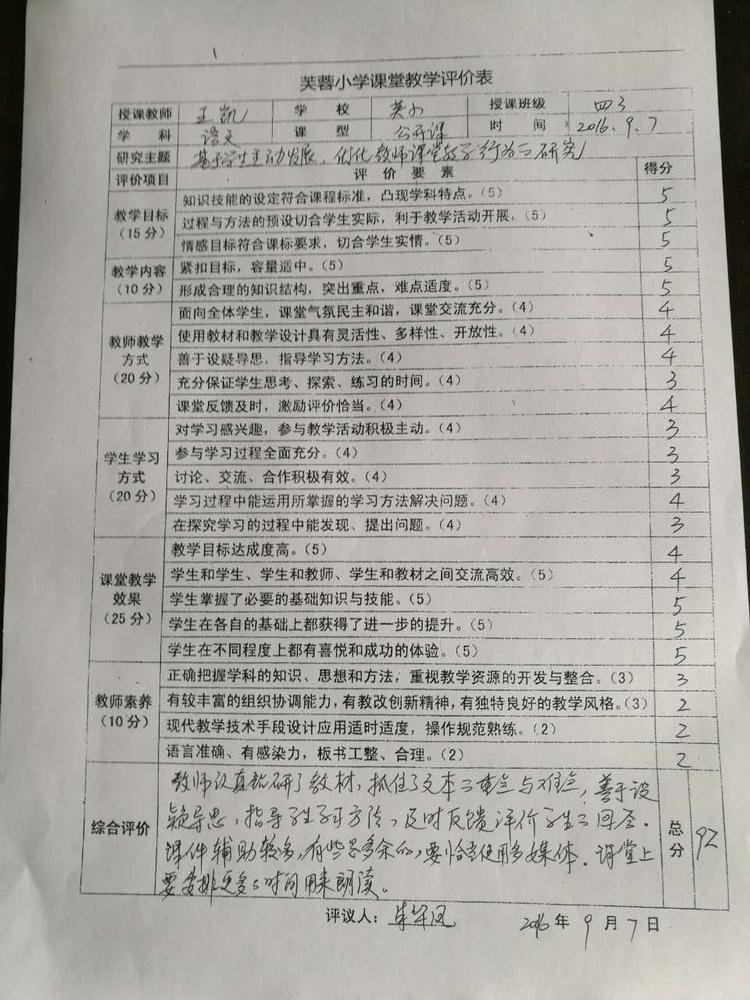 芙蓉小学课堂教学评价表
授课教师 王凯 学校 芙小 授课班级 四3
学科 语文 课型 公开课 时间 2016.9.7
研究主题 基于学生主动发展,优化教师课堂教学行为的研究
评价项目 评价要素 得分
教学目标(15分)
知识技能的设定符合课程标准,凸现学科特点。(5) 5
过程与方法的预设切合学生实际,利于教学活动开展。(5) 5
情感目标符合课标要求,切合学生实情。(5) 5
教学内容(10分)
紧扣目标,容量适中。(5) 5
形成合理的知识结构,突出重点,难点适度。(5) 5
教师教学方式(20分)
面向全体学生,课堂气氛民主和谐,课堂交流充分。(4) 4
使用教材和教学设计具有灵活性、多样性、开放性。(4) 4
善于设疑导思,指导学习方法。(4) 4
充分保证学生思考、探索、练习的时间。(4) 3
课堂反馈及时,激励评价恰当。(4) 4
学生学习方式(20分)
对学习感兴趣,参与教学活动积极主动。(4) 3
参与学习过程全面充分。(4) 3
讨论、交流、合作积极有效。(4) 3
学习过程中能运用所掌握的学习方法解决问题。(4) 4
在探究学习的过程中能发现、提出问题。(4) 3
课堂教学效果(25分)
教学目标达成度高。(5) 4
学生和学生、学生和教师、学生和教材之间交流高效。(5) 4
学生掌握了必要的基础知识与技能。(5) 5
学生在各自的基础上都获得了进一步的提升。(5) 5
学生在不同程度上都有喜悦和成功的体验。(5) 5
教师素养(10分)
正确把握学科的知识、思想和方法,重视教学资源的开发与整合。(3) 3
有较丰富的组织协调能力,有教改创新精神,有独特良好的教学风格。(3) 2
现代教学技术手段设计应用适时适度,操作规范熟练。(2) 2
语言准确、有感染力,板书工整、合理。(2) 2
综合评价
教师认真钻研了教材,抓住了文本的重点与难点,善于设
疑导思,指导学生学习方法,及时反馈评价学生的回答。
课件辅助较多,有些是多余的,要恰当使用多媒体。课堂上
要安排更多的时间用来朗读。
总分 92
评议人: 2016年9月7日